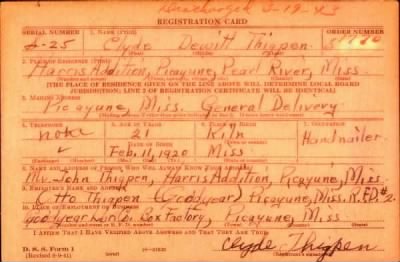 Discharged 3-19-43
REGISTRATION CARD
SERIAL NUMBER 1. NAME (Print) ORDER NUMBER
S-25 Clyde Dewitt Thigpen
2. PLACE OF RESIDENCE (Print)
Harris Addition, Picayune, Pearl River, Miss
[THE PLACE OF RESIDENCE GIVEN ON THE LINE ABOVE WILL DETERMINE LOCAL BOARD
JURISDICTION; LINE 2 OF REGISTRATION CERTIFICATE WILL BE IDENTICAL]
3. MAILING ADDRESS
Picayune, Miss. General Delivery
4. TELEPHONE 5. AGE IN YEARS 6. PLACE OF BIRTH 7. OCCUPATION
none 21 Kiln Handnailer
DATE OF BIRTH
Feb. 11, 1920 Miss
8. NAME AND ADDRESS OF PERSON WHO WILL ALWAYS KNOW YOUR ADDRESS
Mr. John Thigpen, Harris Addition, Picayune, Miss
9. EMPLOYER'S NAME AND ADDRESS
Otto Thigpen (Goodyear) Picayune, Miss. R.F.D. #2
10. PLACE OF EMPLOYMENT OR BUSINESS
Goodyear Box Factory, Picayune, Miss
I AFFIRM THAT I HAVE VERIFIED ABOVE ANSWERS AND THAT THEY ARE TRUE.
D. S. S. Form 1
Clyde Thigpen